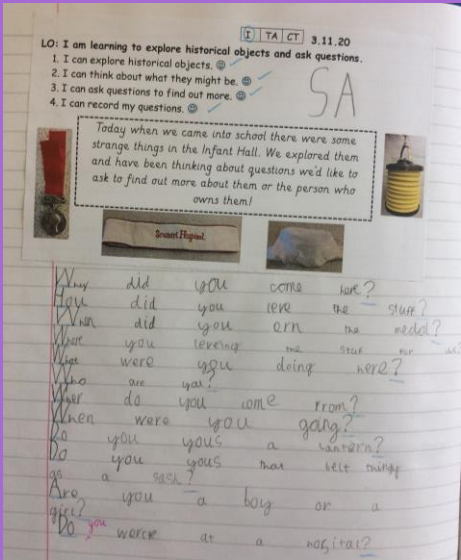 I TA CT 3.11.20
LO: I am learning to explore historical objects and ask questions.
1. I can explore historical objects.
2. I can think about what they might be.
3. I can ask questions to find out more.
4. I can record my questions.
SA
Today when we came into school there were some
strange things in the Infant Hall. We explored them
and have been thinking about questions we'd like to
ask to find out more about them or the person who
owns them!
did you come here?
How did you leve the stuff?
When did you ern the medal?
you leveing the stuf for
What were you doing here?
Who are you?
do you come from?
When were you going?
Do you yous a lantern?
Do you yous that belt thingy
as a sash?
Are you a boy or a
girl?
Do you worck at a hospital?